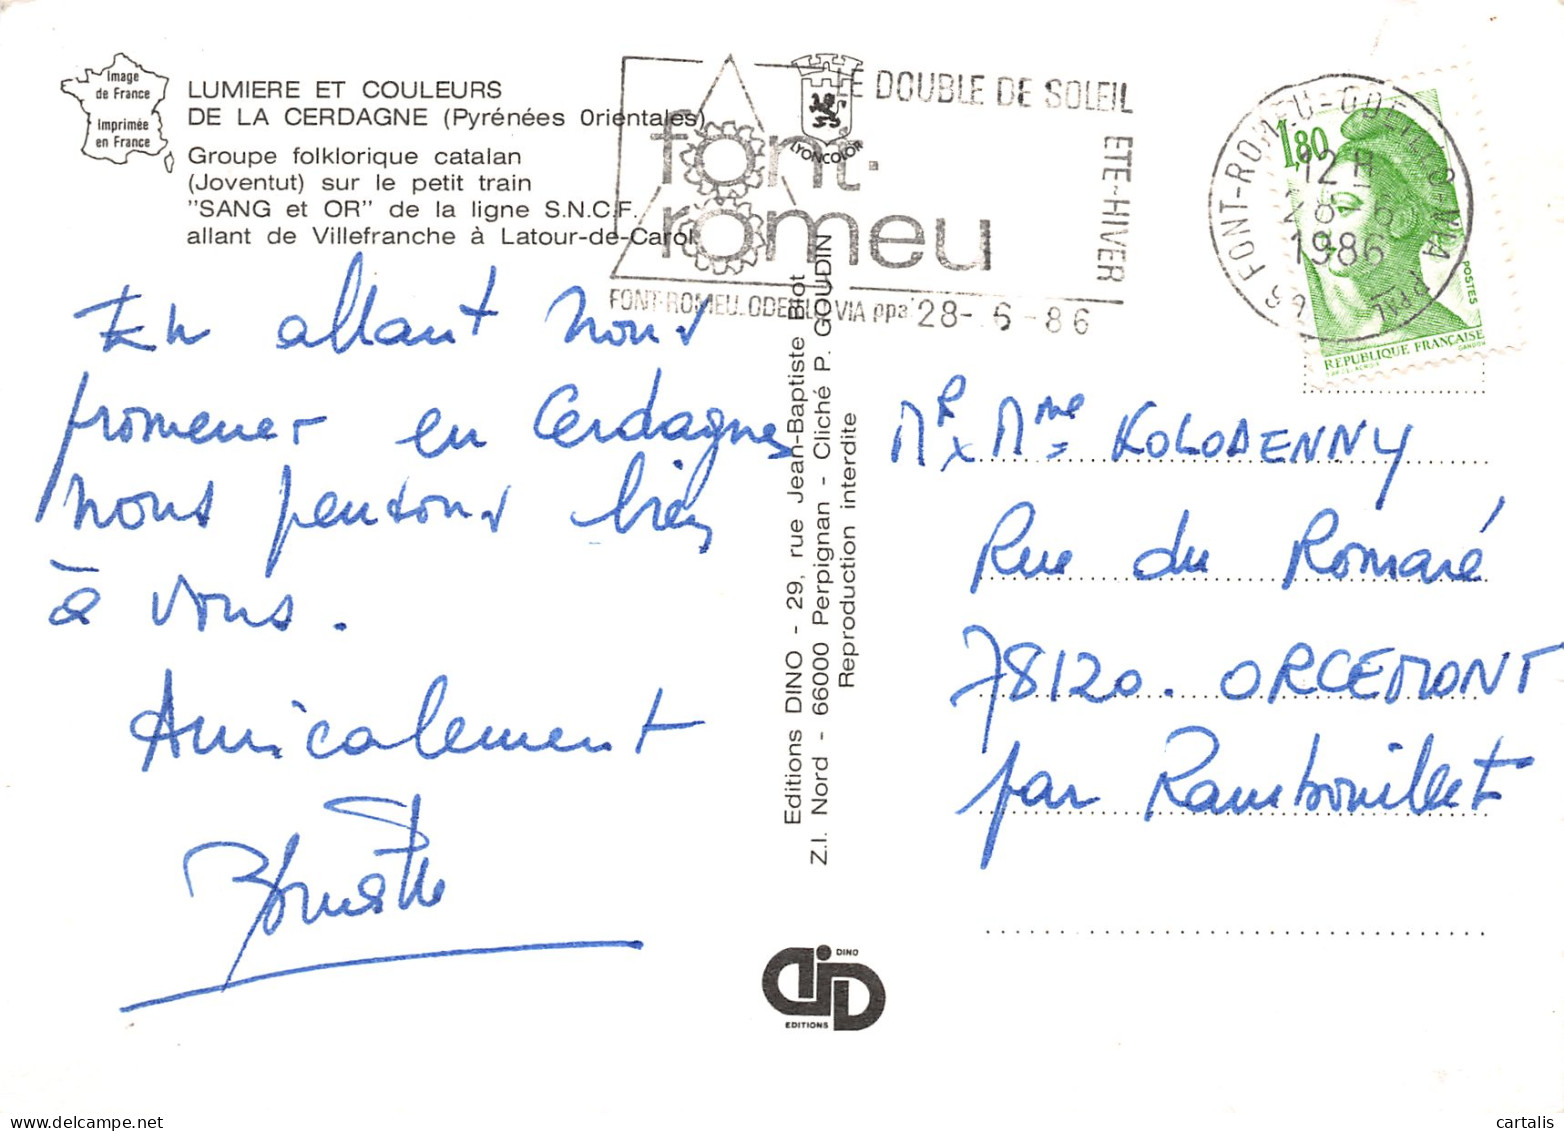 Image
de France
Imprimée
en France
LUMIERE ET COULEURS
DE LA CERDAGNE (Pyrénées Orientales)
Groupe folklorique catalan
(Joventut) sur le petit train
"SANG et OR" de la ligne S.N.C.F.
allant de Villefranche à Latour-de-Carol
LYONCOLOR
LE DOUBLE DE SOLEIL
ETE-HIVER
font-
romeu
FONT-ROMEU-ODEILLO VIA ppal 28- 6 -86
66 FONT-ROMEU-ODEILLO-VIA PPAL
12 H
28-6
1986
1,80
POSTES
REPUBLIQUE FRANÇAISE
GANDON
En allant nous
promener en Cerdagne
nous pensons bien
à vous.
Amicalement
Editions DINO - 29, rue Jean-Baptiste Biot
Z.I. Nord - 66000 Perpignan - Cliché P. GOUDIN
Reproduction interdite
DINO
EDITIONS
Mr x Mme KOLODENNY
Rue du Romaré
78120. ORCEMONT
par Rambouillet
cartalis